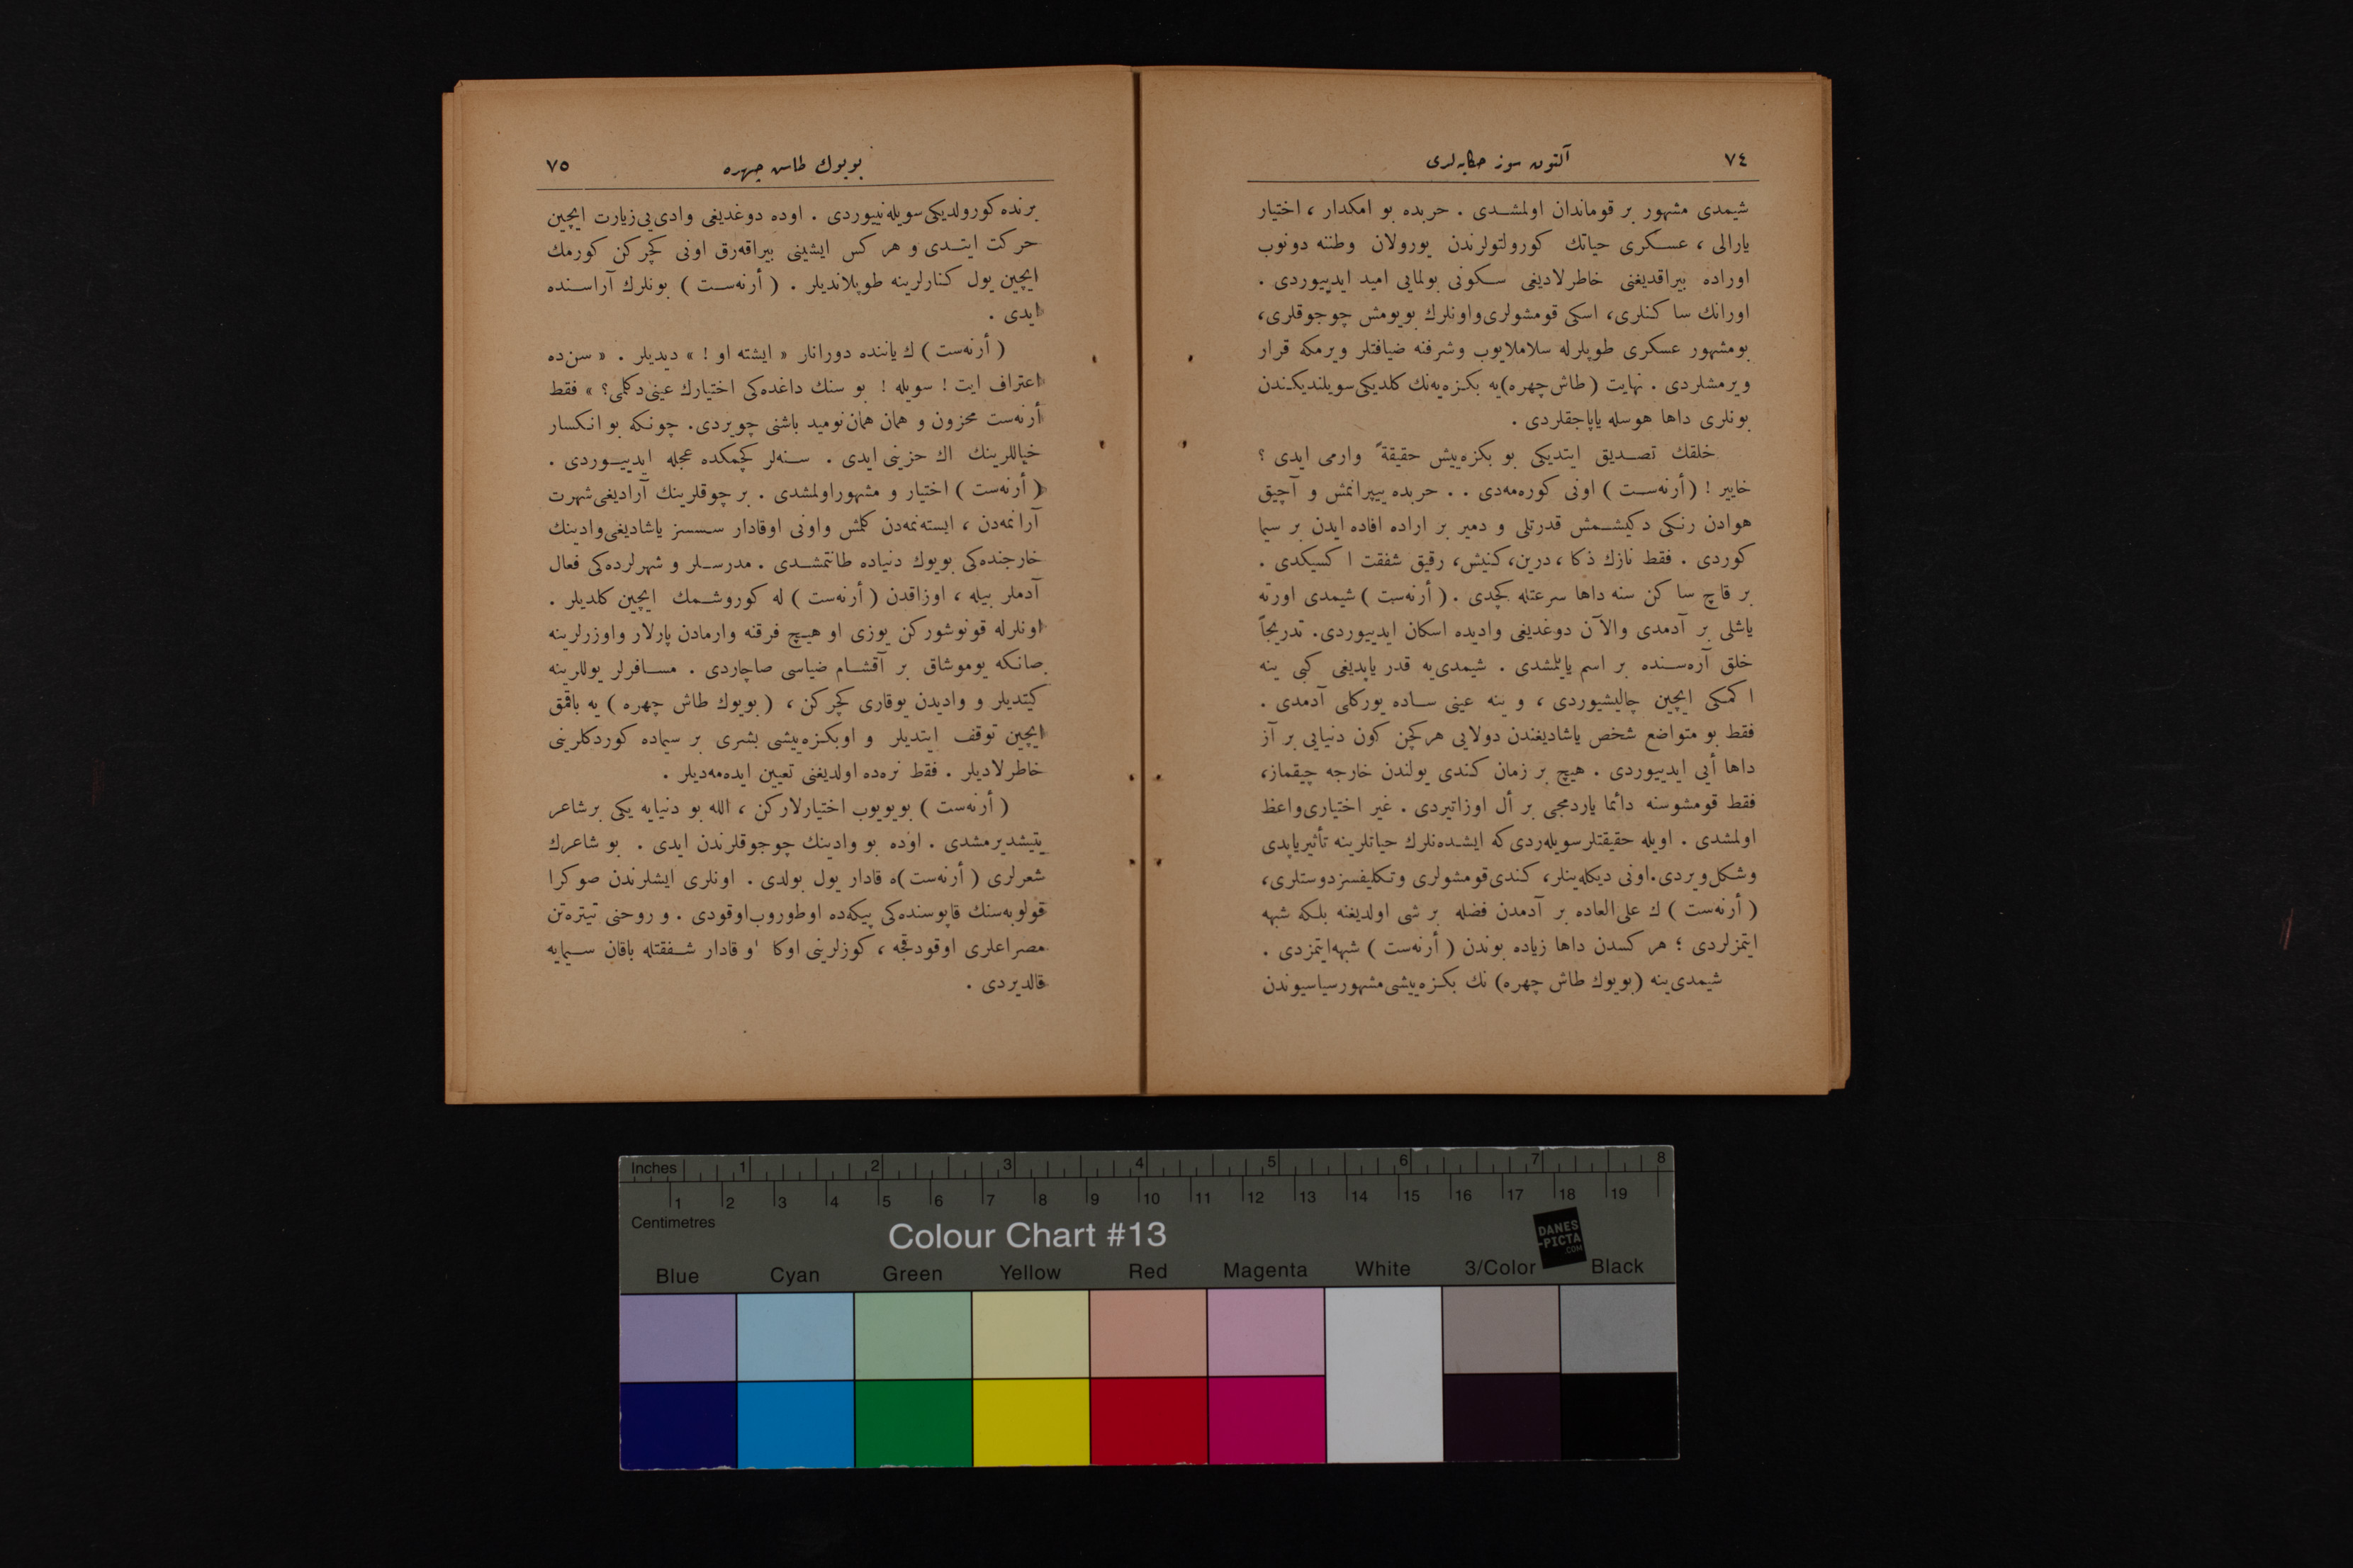 ٧٤
آلتون سوز حكايه‌لری
شيمدی مشهور بر قوماندان اولمشدی . حربده بو امكدار ، اختيار
يارالی ، عسكری حياتك كورولتولرندن يورولان وطننه دونوب
اوراده بيراقديغنی خاطرلاديغی سكونی بولمايی اميد ايدييوردی .
اورانك ساكنلری، اسكی قومشولری واونلرك بويومش چوجوقلری،
بومشهور عسكری طوپلرله سلاملايوب وشرفنه ضيافتلر ويرمكه قرار
ويرمشلردی . نهايت (طاش چهره)يه بكزه‌يه‌نك كلديكی سويلنديكندن
بونلری داها هوسله ياپاجقلردی .
خلقك تصديق ايتديكی بو بكزه‌ييش حقيقةً وارمی ايدی ؟
خايير ! (أرنه‌ست) اونی كوره‌مه‌دی . . حربده ييپرانمش و آچيق
هوادن رنكی دكيشمش قدرتلی و دمير بر اراده افاده ايدن بر سيما
كوردی . فقط نازك ذكا ، درين، كنيش، رقيق شفقت اكسيكدی .
بر قاچ ساكن سنه داها سرعتله كچدی . (أرنه‌ست) شيمدی اورته
ياشلی بر آدمدی والآن دوغديغی واديده اسكان ايدييوردی. تدريجاً
خلق آره‌سنده بر اسم ياپمشدی . شيمدی‌يه قدر ياپديغی كبی ينه
اكمكی ايچين چاليشيوردی ، و ينه عينی ساده يوركلی آدمدی .
فقط بو متواضع شخص ياشاديغندن دولايی هركچن كون دنيايی بر آز
داها أيی ايدييوردی . هيچ بر زمان كندی يولندن خارجه چيقماز،
فقط قومشوسنه دائما ياردمجی بر أل اوزاتيردی . غير اختياری واعظ
اولمشدی . اويله حقيقتلر سويله‌ردی كه ايشده‌نلرك حياتلرينه تأثيرياپدی
وشكل ويردی.اونی ديكله‌ينلر، كندی قومشولری وتكليفسز دوستلری،
(أرنه‌ست) ك علی‌العاده بر آدمدن فضله بر شی اولديغنه بلكه شبهه
ايتمزلردی ؛ هر كسدن داها زياده بوندن (أرنه‌ست) شبهه‌ايتمزدی .
شيمدی ينه (بويوك طاش چهره) نك بكزه‌ييشی مشهورسياسيوندن
بويوك طاش چهره
٧٥
برنده كورولديكی سويله‌نييوردی . اوده دوغديغی وادی‌يی زيارت ايچين
حركت ايتدی و هر كس ايشينی بيراقه‌رق اونی كچركن كورمك
ايچين يول كنارلرينه طوپلانديلر . (أرنه‌ست) بونلرك آراسنده
ايدی .
(أرنه‌ست) ك ياننده دورانلر « ايشته او ! » ديديلر . « سن‌ده
اعتراف ايت ! سويله ! بو سنك داغده‌كی اختيارك عينی دكلمی؟ » فقط
أرنه‌ست محزون و همان همان نوميد باشنی چويردی. چونكه بو انكسار
خياللرينك اك حزينی ايدی . سنه‌لر كچمكده عجله ايدييوردی .
(أرنه‌ست) اختيار و مشهوراولمشدی . بر چوقلرينك آراديغی شهرت
آرانمه‌دن ، ايسته‌نمه‌دن كلمش واونی اوقادار سسسز ياشاديغی وادينك
خارجنده‌كی بويوك دنياده طانتمشدی . مدرسلر و شهرلرده‌كی فعال
آدملر بيله ، اوزاقدن (أرنه‌ست) له كوروشمك ايچين كلديلر .
اونلرله قونوشوركن يوزی او هيچ فرقنه وارمادن پارلار واوزرلرينه
صانكه يوموشاق بر آقشام ضياسی صاچاردی . مسافرلر يوللرينه
كيتديلر و واديدن يوقاری كچركن ، (بويوك طاش چهره) يه باقمق
ايچين توقف ايتديلر و اوبكزه‌ييشی بشری بر سيماده كوردكلرينی
خاطرلاديلر . فقط نره‌ده اولديغنی تعيين ايده‌مه‌ديلر .
(أرنه‌ست) بويويوب اختيارلاركن ، الله بو دنيايه يكی برشاعر
يتيشديرمشدی . اوده بو وادينك چوجوقلرندن ايدی . بو شاعرك
شعرلری (أرنه‌ست)ه قادار يول بولدی . اونلری ايشلرندن صوكرا
قولوبه‌سنك قاپوسنده‌كی پيكه‌ده اوطوروب‌اوقودی . و روحنی تيتره‌تن
مصراعلری اوقودقجه ، كوزلرينی اوكا او قادار شفقتله باقان سيمايه
قالديردی .
Inches 1 2 3 4 5 6 7 8
1 2 3 4 5 6 7 8 9 10 11 12 13 14 15 16 17 18 19
Centimetres
Colour Chart #13
DANES
-PICTA
.COM
Blue Cyan Green Yellow Red Magenta White 3/Color Black